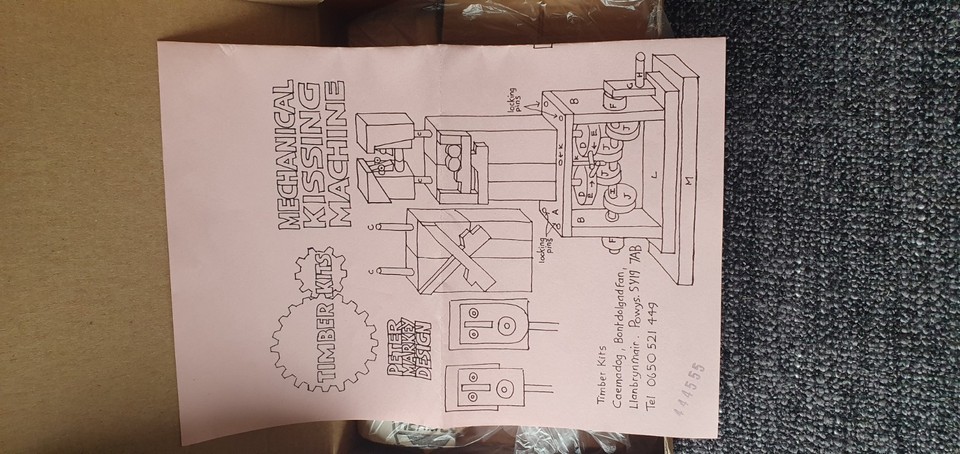 TIMBER KITS
MECHANICAL
KISSING
MACHINE
PETER
MARKEY
DESIGN
C
C
C
C
locking
pins
locking
pins
A
B
B
D
D
E
E
K
C
C
I
J
J
J
F
F
G
H
L
M
Timber Kits
Caemadog, Bontdolgadfan,
Llanbrynmair. Powys. SY19 7AB
Tel 0650 521 449